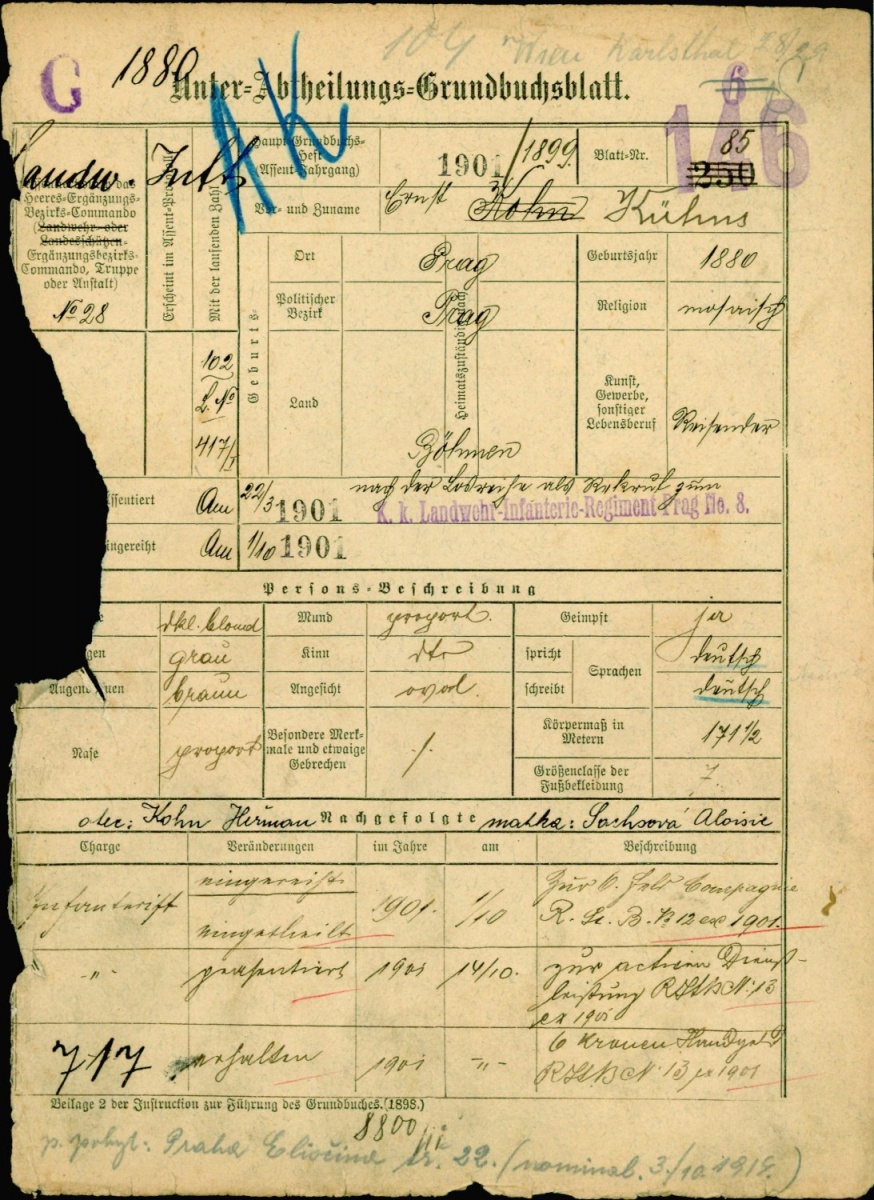 104 Wien Karlsthal 28/29
G 1880
Unter-Abtheilungs-Grundbuchsblatt.
A K
6
146
Landw. Inft
Haupt-Grundbuchs-
Heft
(Assent-Jahrgang)
1901/1899
Blatt-Nr.
85
250
Vor- und Zuname
Ernst Kohn Kühns
das
Heeres-Ergänzungs-
Bezirks-Commando
(Landwehr- oder
Landesschützen-
Ergänzungsbezirks-
Commando, Truppe
oder Anstalt)
No 28
Erscheint im Assent-Protokoll
Mit der laufenden Zahl
102
L. No
Geburts-
Ort
Prag
Geburtsjahr
1880
Politischer
Bezirk
Prag
Religion
mosaisch
Heimatszuständig
Land
Böhmen
Kunst,
Gewerbe,
sonstiger
Lebensberuf
Reisender
Assentiert Am 22/3 1901 nach der Losreihe als Rekrut zum
K. k. Landwehr-Infanterie-Regiment Prag No. 8.
eingereiht Am 1/10 1901
Persons-Beschreibung
dkl. blond
Mund
proport.
Geimpft
ja
grau
Kinn
dto
spricht
Sprachen
deutsch
Augenbrauen
braun
Angesicht
oval.
schreibt
deutsch
Nase
proport
Besondere Merk-
male und etwaige
Gebrechen
Körpermaß in
Metern
171 1/2
Größenclasse der
Fußbekleidung
7
otec: Kohn Heřman Nachgefolgte matka: Sachsová Aloisie
Charge Veränderungen im Jahre am Beschreibung
Infanterist eingereiht
eingetheilt
1901. 1/10
Zur 6. Feld Compagnie
12 ex 1901.
-"- präsentiert 1901 14/10.
zur activen Dienst-
leistung No. 13
ex 1901
717 erhalten 1901 -"-
6 Kronen Handgeld
No. 13 ex 1901
Beilage 2 der Instruction zur Führung des Grundbuches. (1898.)
8800
p. pobyt: Praha Eliščina tř. 22. (nominal. 3./10.1918.)